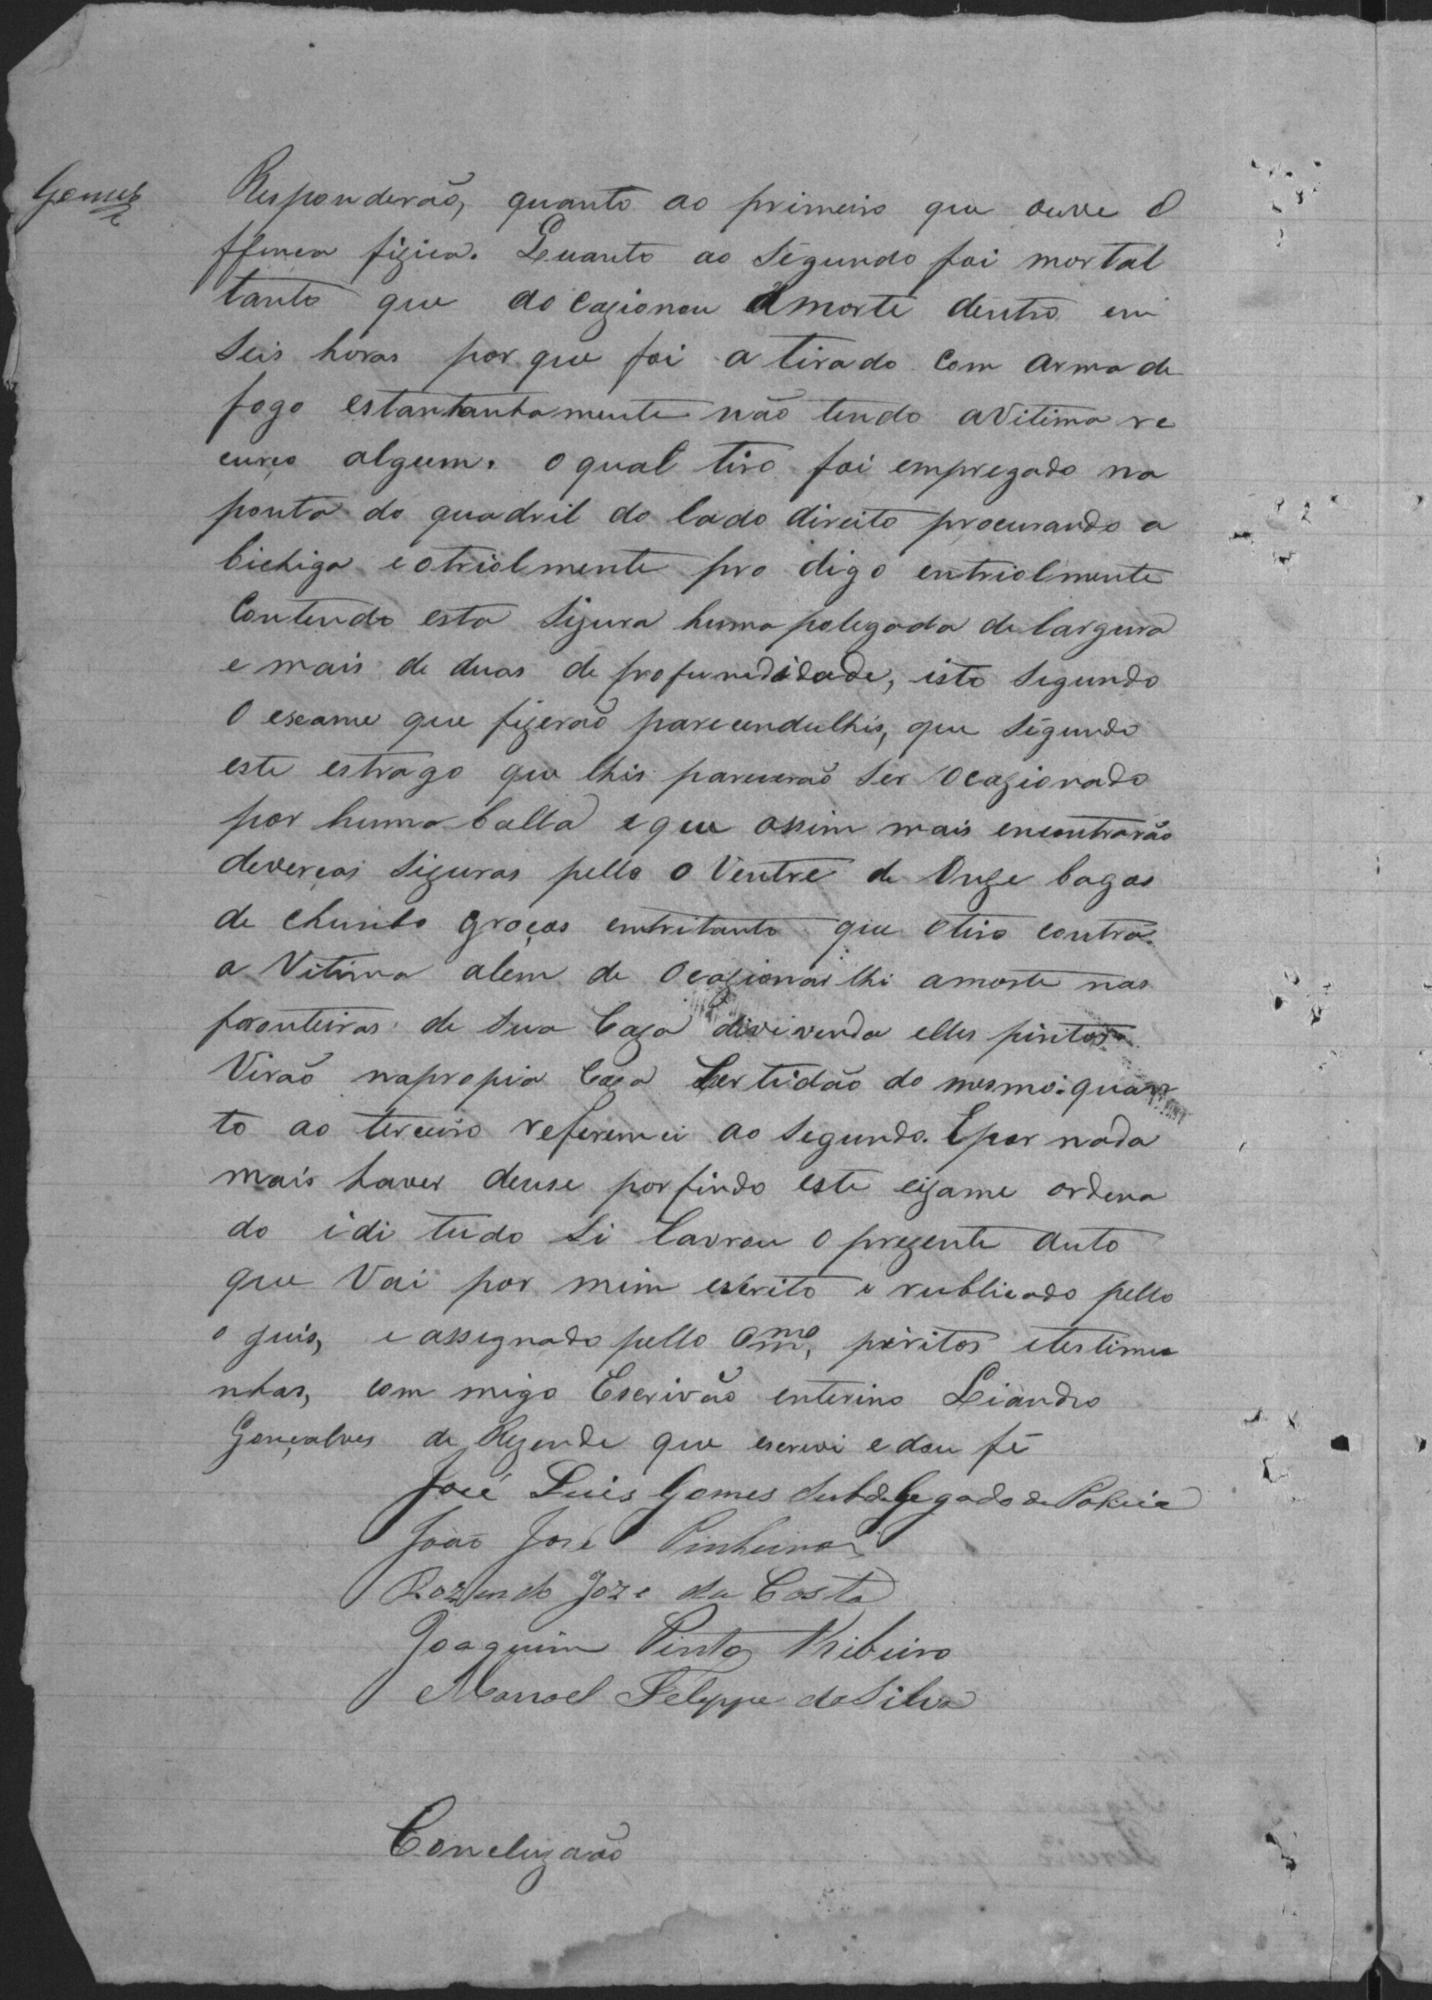 Gomes
Responderão, quanto ao primeiro que ouve O
ffença fizica. Quanto ao Segundo foi mortal
tanto que do cazionou a morte dentro em
Seis horas por que foi a tirado com arma de
fogo estantantamente não tendo a Vitima re
curço algum. o qual tiro foi empregado na
ponta do quadril do lado direito procurando a
bichiga e otriolmente pro digo entriolmente
Contendo esta Sizura huma polegada de largura
e mais de duas de profunedidade, isto Segundo
O escame que fizerão parecendulhis, que Segundo
este estrago que lhis parecerão Ser Ocazionado
por huma balla e que assim mais encontrarão
deverças Sizuras pello o Ventre de Onze bagos
de chunbo groços entritanto que Otiro contra
a Vitima alem de Ocazionar lhi amorte nas
fronteiras de Sua Caza divivenda elles piritos
Virão napropia Caza Certidão do mesmo: quan
to ao terceiro referemci ao Segundo. E por nada
mais haver deuse por findo este eizame ordena
do i di tudo Si Lavrou O prezente Auto
que Vai por mim escrito e rublicado pello
o juis, e assegnado pello O mmo, piritos etestimu
nhas, com migo Escrivão enterino Liandro
Gonçalves de Rezende que escrevi e dou fé
José Luis Gomes Subdelegado de Policia
João José Pinheiro
Rozendo Joze da Costa
Joaquim Pinto Ribeiro
Manoel Felippe da Silva
Concluzaão